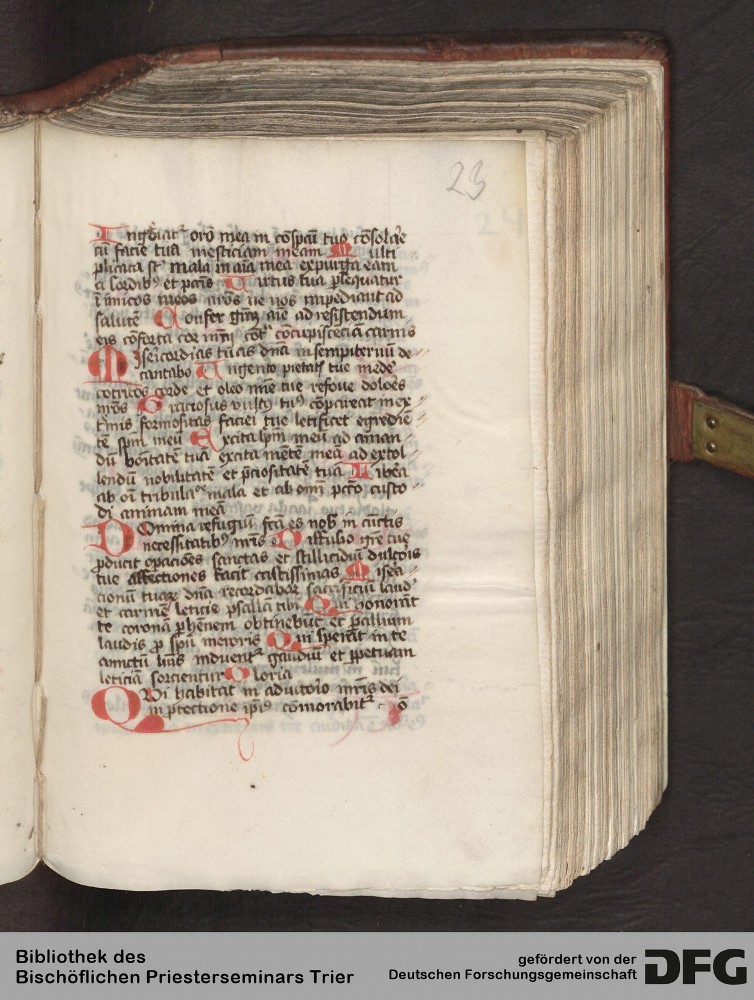 23
Ingrediat᷑ oro mea in cospcu tuo cosolare
cu facie tua mesticiam meam Multi
plicata st mala in aia mea expurga eam
a sordibꝰ et pctis Virtus tua psequatur
inimicos meos nros ne nos impediant ad
salute Confer gram aie ad resistendum
eis coforta cor meu cotra concupisceciā carnis
Misericordias tuas dna in sempiternu de
cantabo Ungento pietatis tue mede
cotritos corde et oleo mie tue refove dolores
nros Graciosus vultꝰ tuꝰ copareat in ex
tmis formositas faciei tue letificet egredie
te spm meu Excita spm meu ad aman
du bonitate tua excita mente mea ad extol
lendu nobilitate et pciositate tua Libera
ab oi tribulaoe mala et ab omi pcto custo
di animam mea
Domina refugiu fca es nob in cuctis
necessitatibꝰ nris Diffusio gre tue
producit opacioes sanctas et stillicidiu dulcois
tue affectiones facit castissimas Misera
cionu tuaꝝ dna recordabor sacrificiu laud
et carme leticie psalla tibi Qui honorat
te corona phennem obtinebut et pallium
laudis p spu meroris Qui sperat in te
amictu luis induent᷑ gaudiu et ppetuam
leticia sorcientur Gloria
Qui habitat in adiutoio mris dei
in ptectione ipiꝰ comorabit᷑ o
Bibliothek des
Bischöflichen Priesterseminars Trier
gefördert von der
Deutschen Forschungsgemeinschaft
DFG